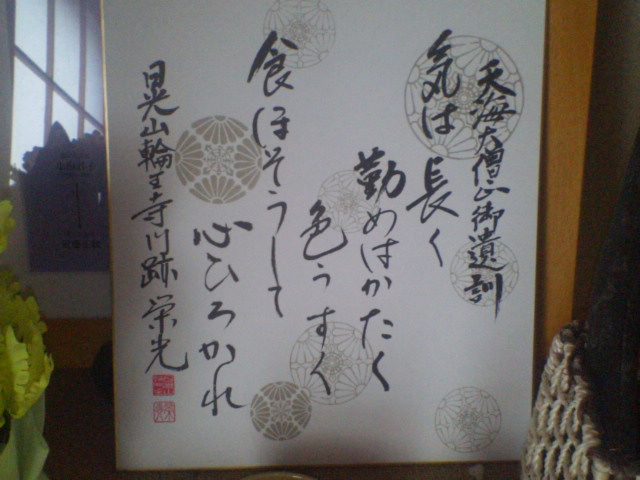 天海大僧正御遺訓
気は長く
勤めはかたく
色うすく
食ほそうして
心ひろかれ
晃山輪王寺門跡 栄光